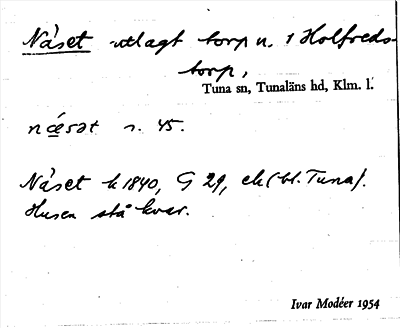 Näset utlagt torp u. 1 Holfreds-
torp,
Tuna sn, Tunaläns hd, Klm. l.
næsət n. 45.
Näset k 1840, G 29, ek (bl. Tuna).
Husen stå kvar.
Ivar Modéer 1954